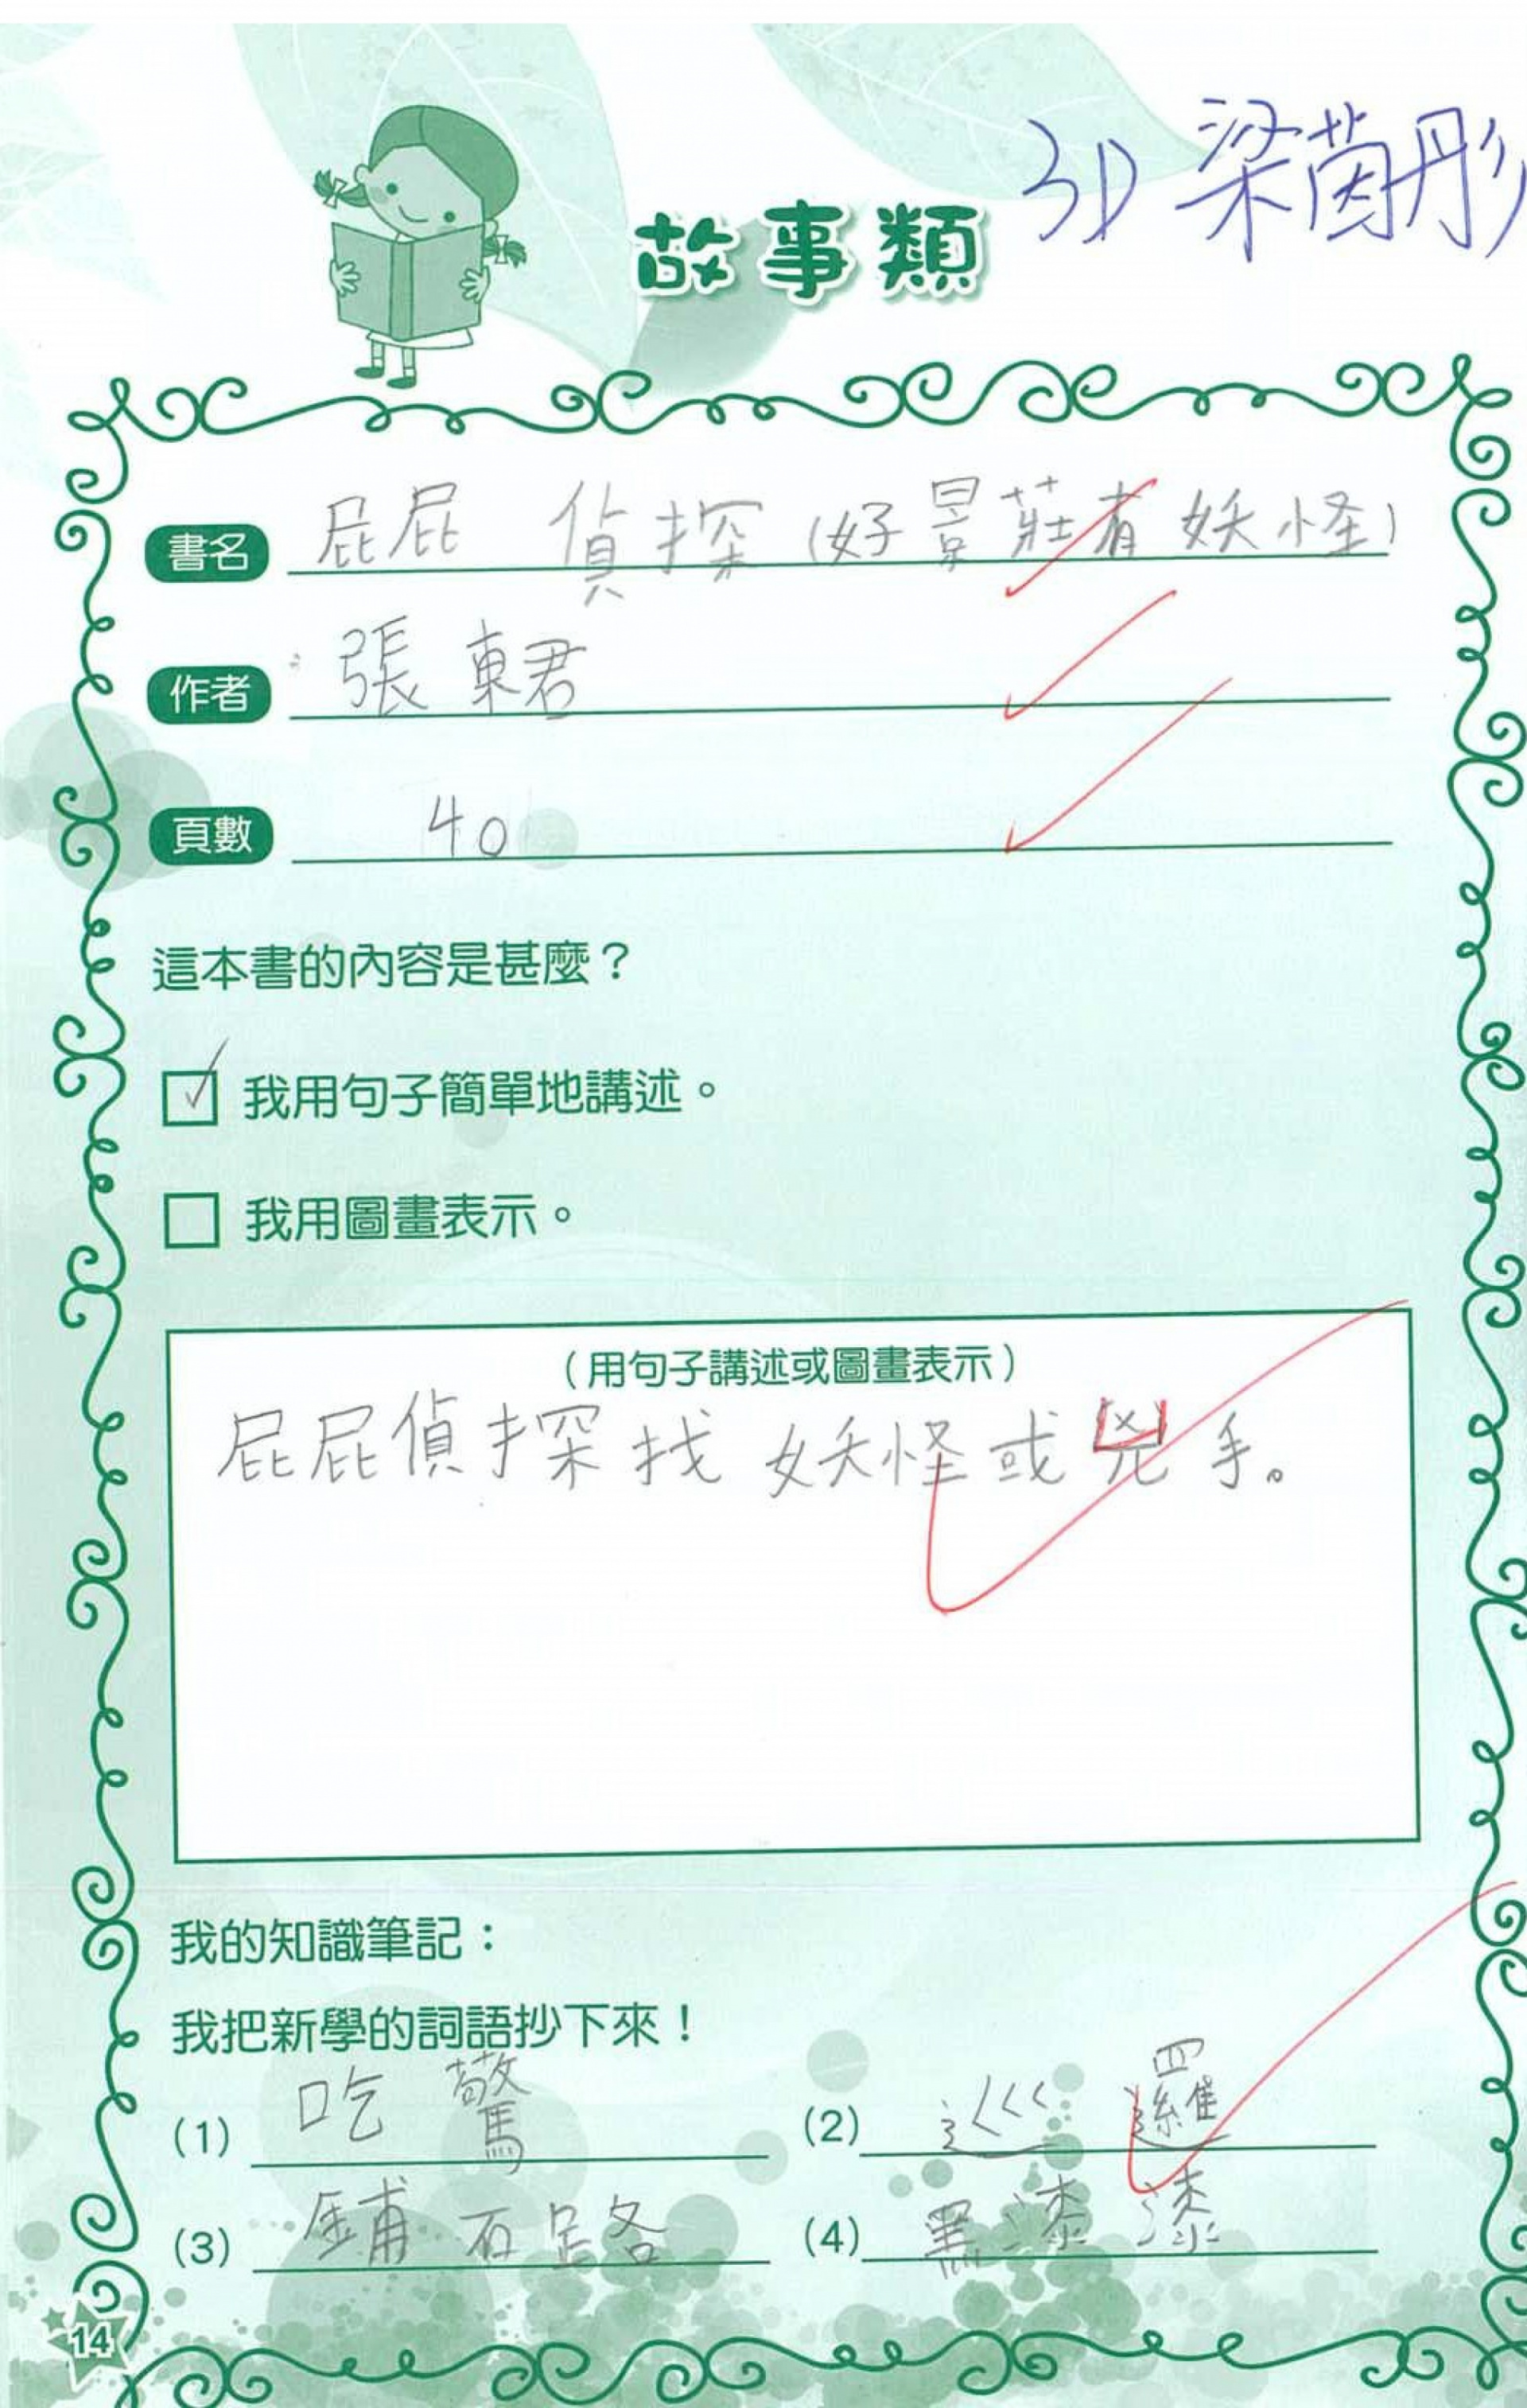 故事類
3D 梁茵彤
書名 屁屁 偵探 (好景莊有妖怪)
作者 張東君
頁數 40
這本書的內容是甚麼？
我用句子簡單地講述。
我用圖畫表示。
（用句子講述或圖畫表示）
屁屁偵探找妖怪或兇手。
我的知識筆記：
我把新學的詞語抄下來！
(1) 吃驚 (2) 巡邏
(3) 鋪石路 (4) 黑漆漆
14